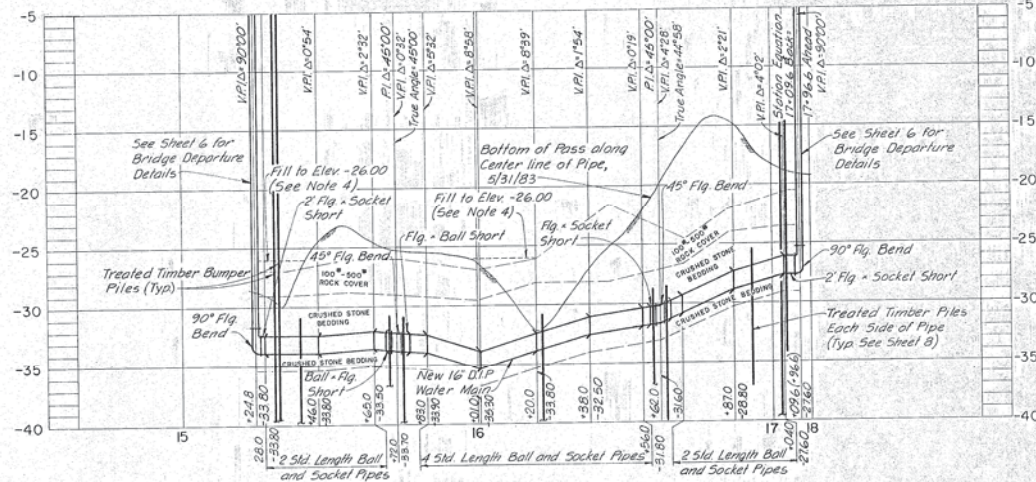 -5
-10
-15
-20
-25
-30
-35
-40
-5
-10
-15
-20
-25
-30
-35
-40
V.P.I. Δ=90°00'
V.P.I. Δ=0°54'
V.P.I. Δ=2°32'
P.I. Δ=45°00'
V.P.I. Δ=0°32'
True Angle=45°00'
V.P.I. Δ=5°32'
V.P.I. Δ=8°58'
V.P.I. Δ=8°39'
V.P.I. Δ=1°54'
V.P.I. Δ=0°19'
P.I. Δ=45°00'
V.P.I. Δ=4°28'
True Angle=44°58'
V.P.I. Δ=2°21'
V.P.I. Δ=4°02'
Station Equation
17+09.6 Back=
17+96.6 Ahead
V.P.I. Δ=90°00'
See Sheet 6 for
Bridge Departure
Details
Fill to Elev. -26.00
(See Note 4)
2' Flg. × Socket
Short
45° Flg. Bend
Treated Timber Bumper
Piles (Typ.)
100#-500#
ROCK COVER
90° Flg.
Bend
CRUSHED STONE
BEDDING
CRUSHED STONE BEDDING
Ball × Flg.
Short
Flg. × Ball Short
Fill to Elev. -26.00
(See Note 4)
Bottom of Pass along
Center line of Pipe,
5/31/83
Flg. × Socket
Short
45° Flg. Bend
100#-500#
ROCK COVER
CRUSHED STONE
BEDDING
CRUSHED STONE
BEDDING
See Sheet 6 for
Bridge Departure
Details
90° Flg. Bend
2' Flg. × Socket Short
Treated Timber Piles
Each Side of Pipe
(Typ. See Sheet 8)
New 16" D.I.P.
Water Main
+24.8
-33.80
28.0
-33.80
+46.0
-33.80
+65.0
-33.50
+72.0
-33.70
+83.0
-33.90
+01.0
-35.30
+20.0
-33.80
+38.0
-32.50
+56.0
+62.0
-31.80
-31.60
+87.0
-28.80
+04.0
+09.6 (+96.6)
-27.60
-27.60
15
16
17
18
2 Std. Length Ball
and Socket Pipes
4 Std. Length Ball and Socket Pipes
2 Std. Length Ball
and Socket Pipes